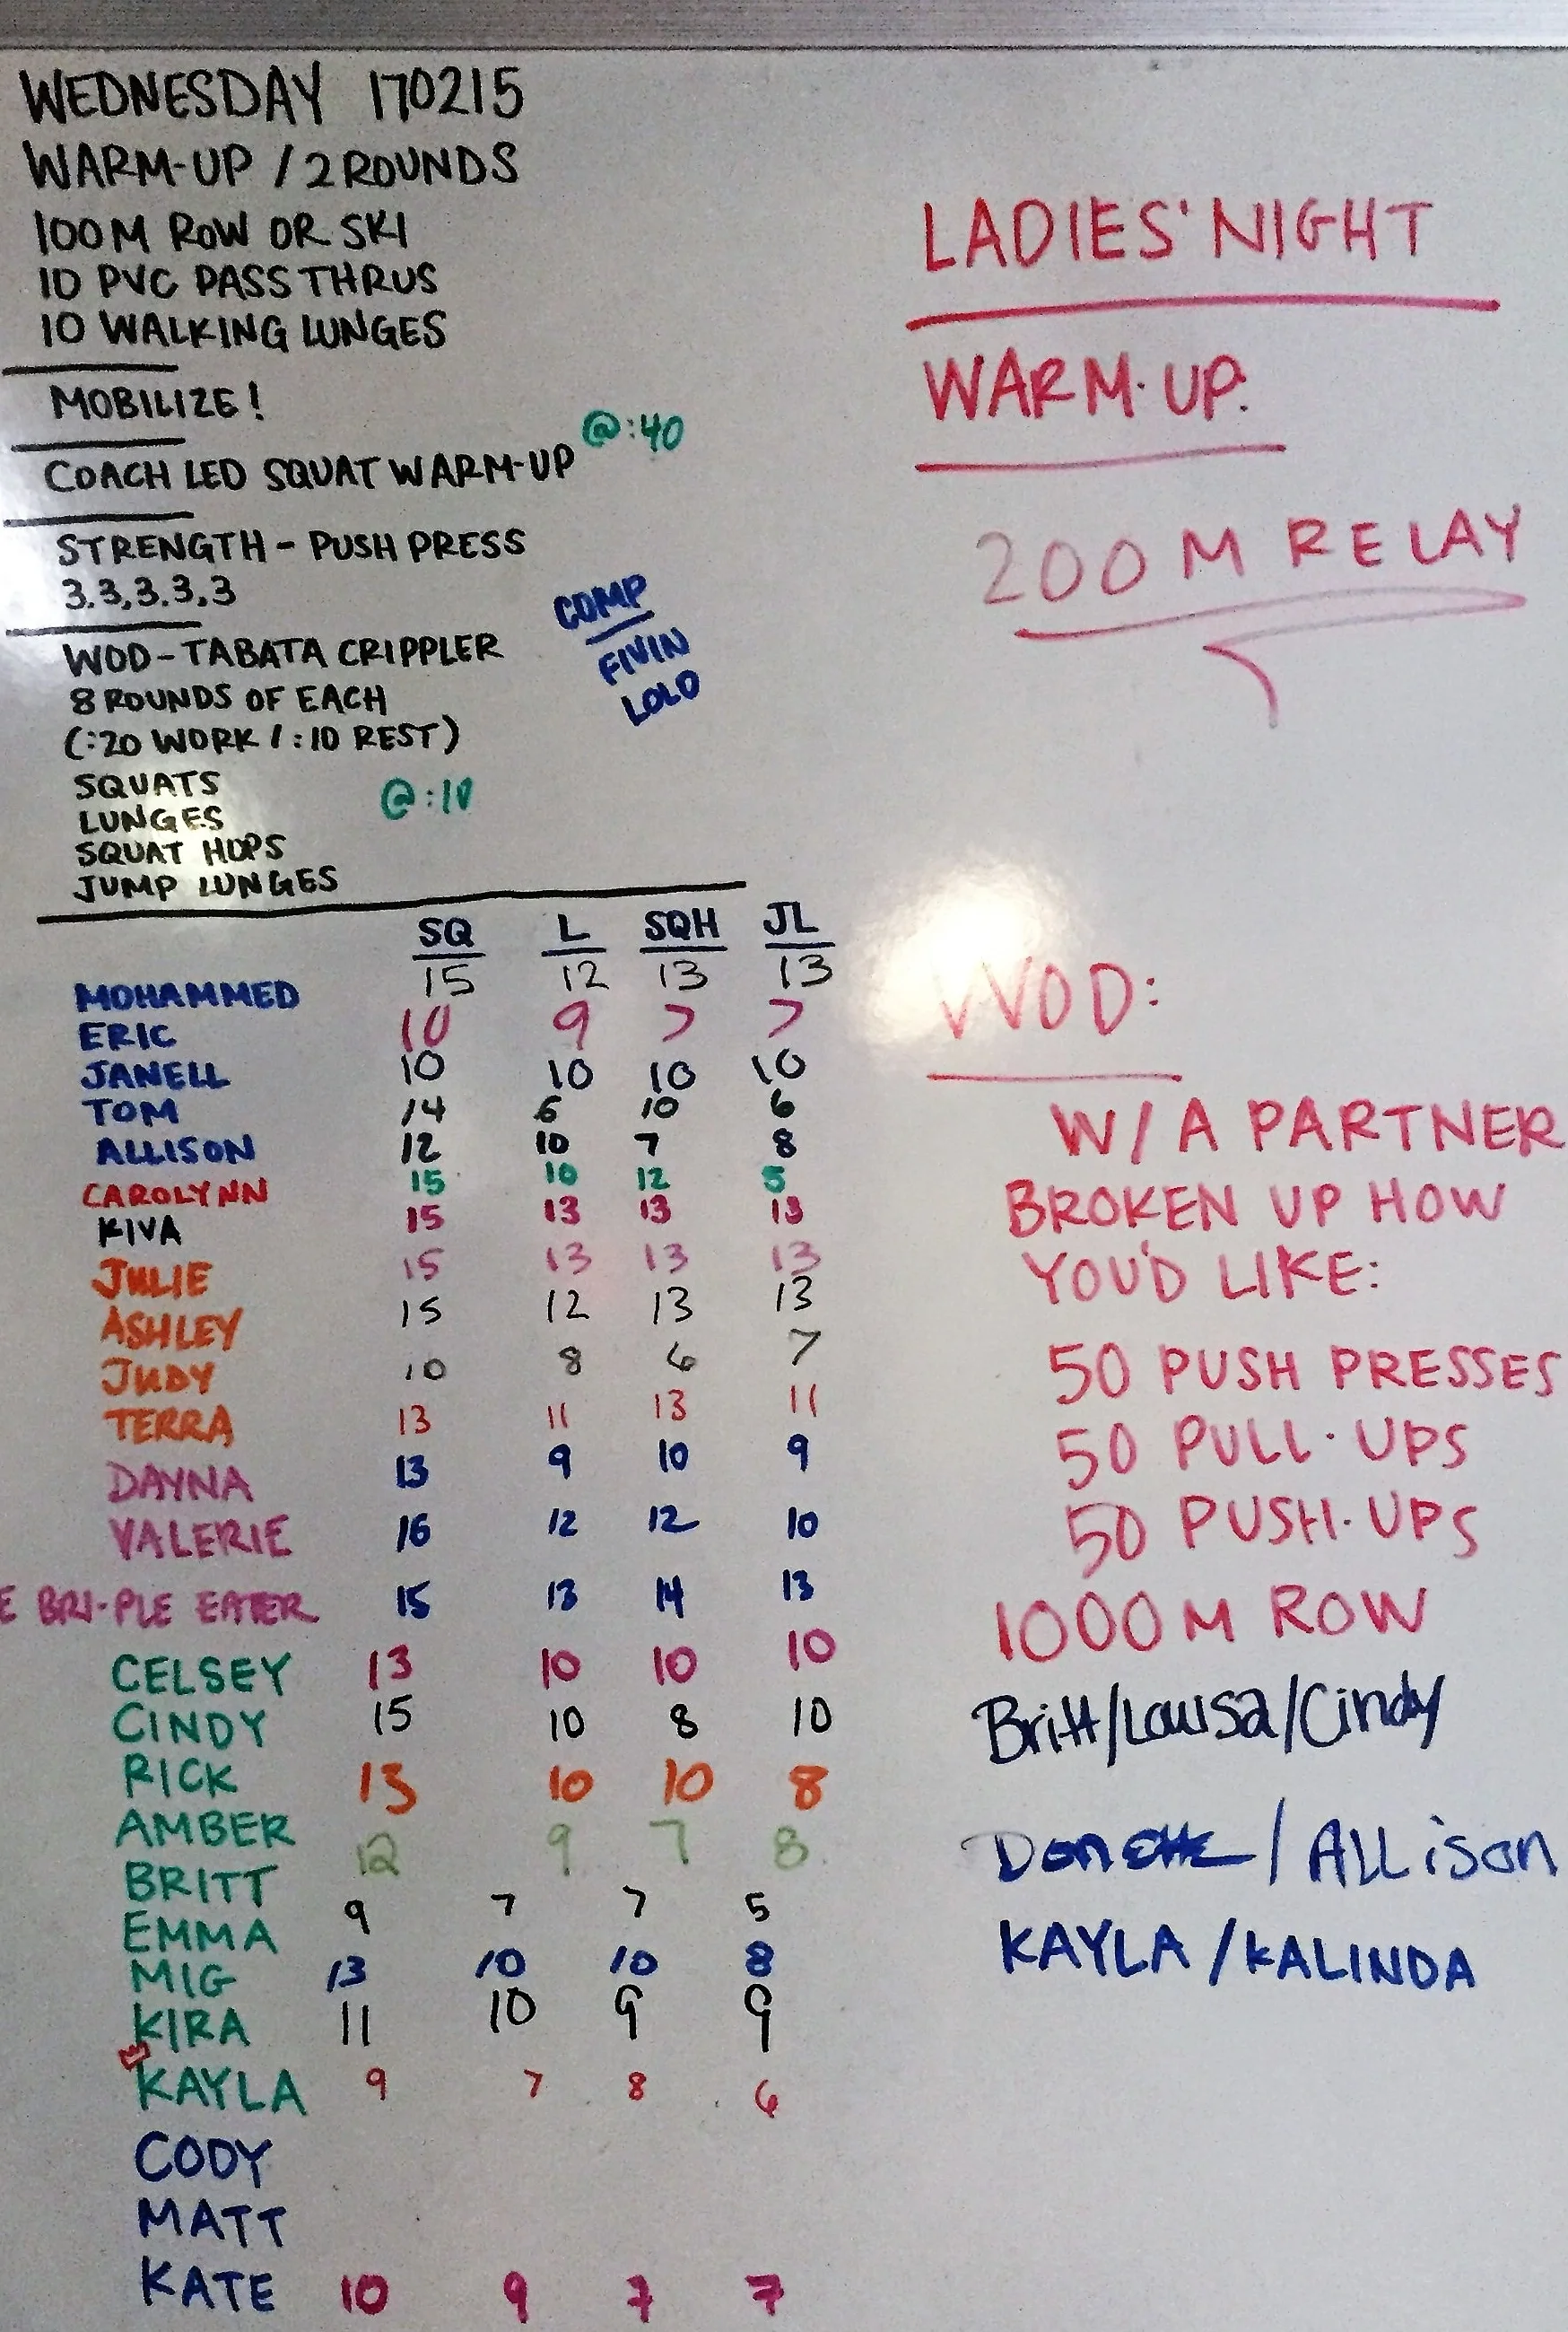 WEDNESDAY 170215
WARM-UP / 2 ROUNDS
100 M ROW OR SKI
10 PVC PASS THRUS
10 WALKING LUNGES
MOBILIZE!
COACH LED SQUAT WARM-UP @:40
STRENGTH - PUSH PRESS
3.3,3.3,3
COMP
FIVIN
LOLO
WOD - TABATA CRIPPLER
8 ROUNDS OF EACH
(:20 WORK / :10 REST)
SQUATS
@:10
LUNGES
SQUAT HOPS
JUMP LUNGES
SQ L SQH JL
MOHAMMED 15 12 13 13
ERIC 10 9 7 7
JANELL 10 10 10 10
TOM 14 6 10 6
ALLISON 12 10 7 8
CAROLYNN 15 10 12 5
KIVA 15 13 13 13
JULIE 15 13 13 13
ASHLEY 15 12 13 13
JUDY 10 8 6 7
TERRA 13 11 13 11
DAYNA 13 9 10 9
VALERIE 16 12 12 10
E BRI-PLE EATER 15 13 14 13
CELSEY 13 10 10 10
CINDY 15 10 8 10
RICK 13 10 10 8
AMBER 12 9 7 8
BRITT 9 7 7 5
EMMA 13 10 10 8
MIG 11 10 9 9
KIRA
KAYLA 9 7 8 6
CODY
MATT
KATE 10 9 7 7
LADIES' NIGHT
WARM-UP:
200 M RELAY
WOD:
W/ A PARTNER
BROKEN UP HOW
YOU'D LIKE:
50 PUSH PRESSES
50 PULL-UPS
50 PUSH-UPS
1000 M ROW
Britt/Louisa/Cindy
/ ALLison
KAYLA / KALINDA